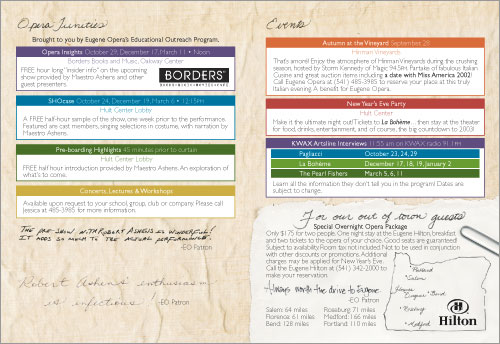 Opera Funities
Brought to you by Eugene Opera's Educational Outreach Program.
Opera Insights October 29, December 17, March 11 • Noon
Borders Books and Music, Oakway Center
FREE hour long "insider info" on the upcoming
show provided by Maestro Ashens and other
guest presenters.
BORDERS
SHOcase October 24, December 19, March 6 • 12:15PM
Hult Center Lobby
A FREE half-hour sample of the show, one week prior to the performance.
Featured are cast members, singing selections in costume, with narration by
Maestro Ashens.
Pre-boarding Highlights 45 minutes prior to curtain
Hult Center Lobby
FREE half hour introduction provided by Maestro Ashens. An exploration of
what's to come.
Concerts, Lectures & Workshops
Available upon request to your school, group, club or company. Please call
Jessica at 485-3985 for more information.
THE PRE-SHOW WITH ROBERT ASHENS IS WONDERFUL!
IT ADDS SO MUCH TO THE ACTUAL PERFORMANCE.
-EO Patron
Robert Ashens' enthusiasm
is infectious!
-EO Patron
Events
Autumn at the Vineyard September 28
Hinman Vineyards
That's amoré! Enjoy the atmosphere of Hinman Vineyards during the crushing
season, hosted by Storm Kennedy of Magic 94.5fm. Partake of fabulous Italian
Cuisine and great auction items including a date with Miss America 2002!
Call Eugene Opera at (541) 485-3985 to reserve your place at this truly
Italian evening. A benefit for Eugene Opera.
New Year's Eve Party
Hult Center
Make it the ultimate night out! Tickets to La Bohème... then stay at the theater
for food, drinks, entertainment, and of course, the big countdown to 2003!
KWAX Artsline Interviews 11:55 am on KWAX radio 91.1FM
Pagliacci October 23, 24, 29
La Bohème December 17, 18, 19, January 2
The Pearl Fishers March 5, 6, 11
Learn all the information they don't tell you in the program! Dates are
subject to change.
For our out of town guests
Special Overnight Opera Package
Only $175 for two people. One night stay at the Eugene Hilton, breakfast
and two tickets to the opera of your choice. Good seats are guaranteed!
Subject to availability. Room tax not included. Not to be used in conjunction
with other discounts or promotions. Additional
charges may be applied for New Year's Eve.
Call the Eugene Hilton at (541) 342-2000 to
make your reservation.
Always worth the drive to Eugene.
-EO Patron
Salem: 64 miles Roseburg: 71 miles
Florence: 61 miles Medford: 166 miles
Bend: 128 miles Portland: 110 miles
Portland
Salem
Florence
Eugene
Bend
Roseburg
Medford
Hilton